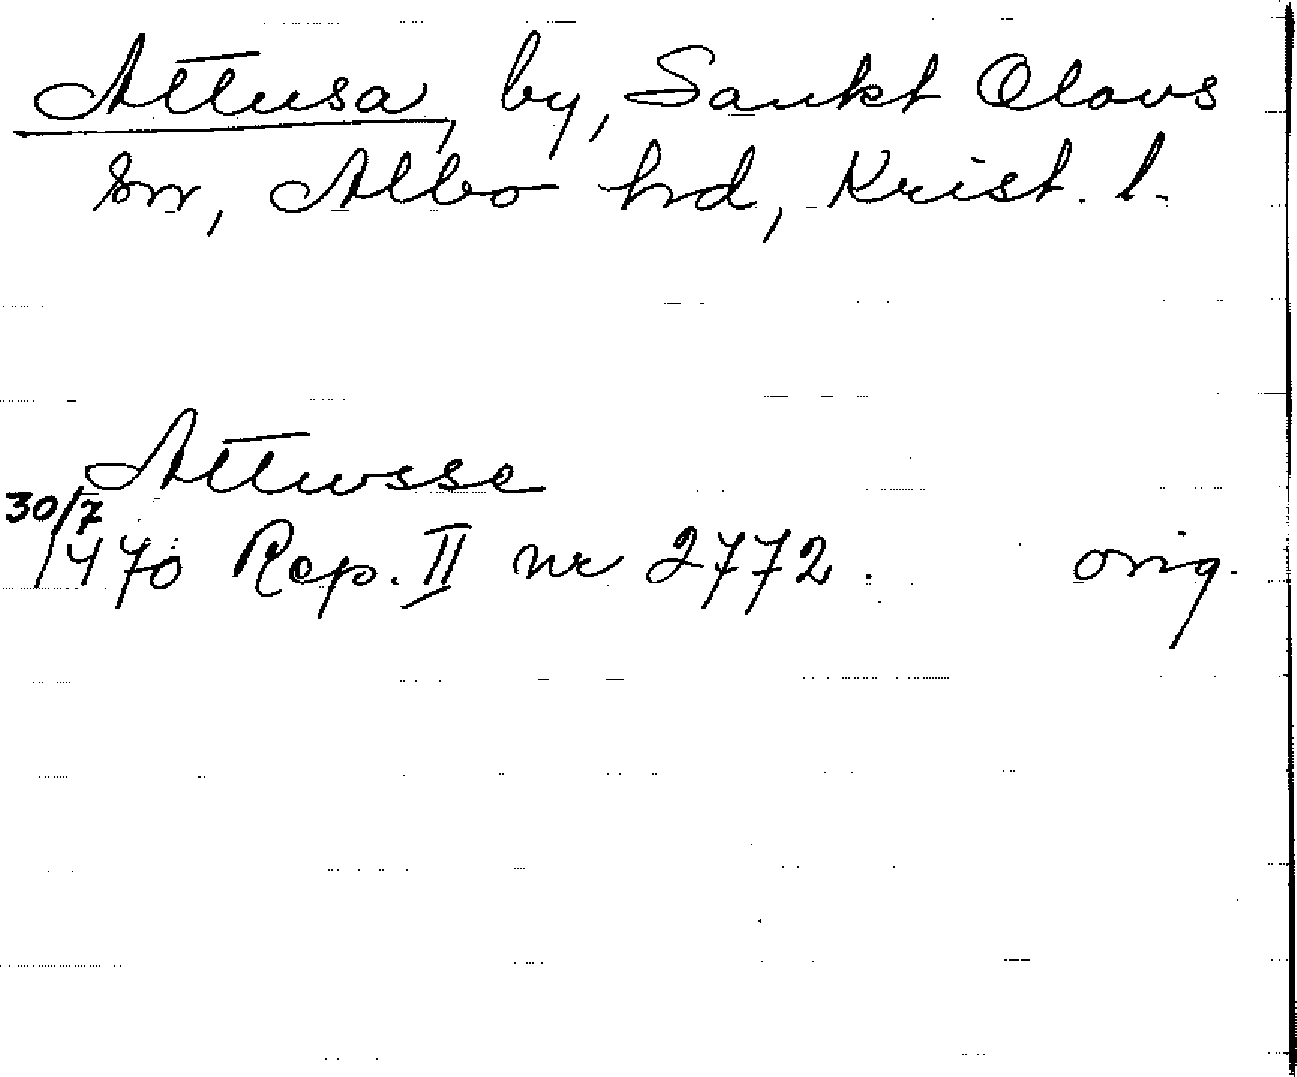 Attusa, by, Sankt Olovs
sn, Albo hd, Krist. l.
Attwsse
30/7
1470 Rep. II nr 2772. orig.